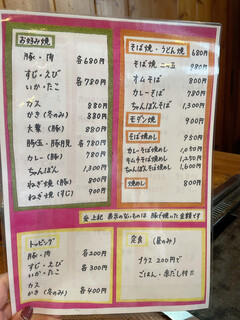 お好み焼
豚・肉 各680円
すじ・えび
いか・たこ 各780円
カス 880円
かき(冬のみ) 880円
大葉(豚) 780円
豚玉・豚月見 各780円
カレー(豚) 780円
ちゃんぽん 1,300円
ねぎ焼(豚) 800円
ねぎ焼(すじ) 900円
そば焼・うどん焼 680円
そば焼 二ツ玉 980円
オムそば 800円
カレーそば 780円
ちゃんぽんそば 1,300円
モダン焼 900円
そば焼めし 950円
カレーそば焼めし 1,050円
キムそば焼めし 1,250円
ちゃんぽん焼めし 1,600円
焼めし 800円
※上記 表示のないものは 豚で焼いた金額です
トッピング
豚・肉 各200円
すじ・えび
いか・たこ 各300円
カス
かき(冬のみ) 各400円
定食(昼のみ)
プラス200円で
ごはん・赤だし付